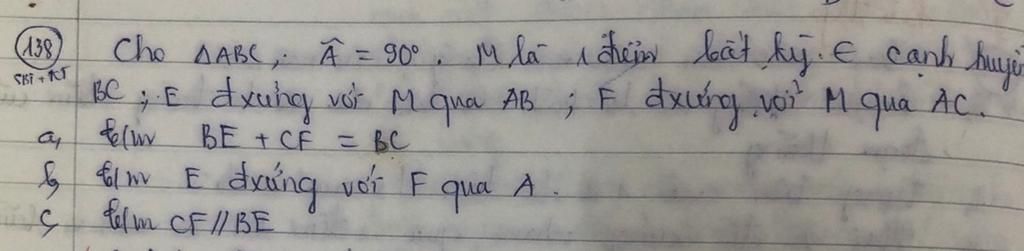 138 Cho ΔABC, Â = 90°. M là 1 điểm bất kỳ ∈ cạnh huyền
SBT + KT BC ; E đxứng với M qua AB ; F đxứng với M qua AC.
a, c/m BE + CF = BC
b, c/m E đxứng với F qua A.
c, c/m CF // BE